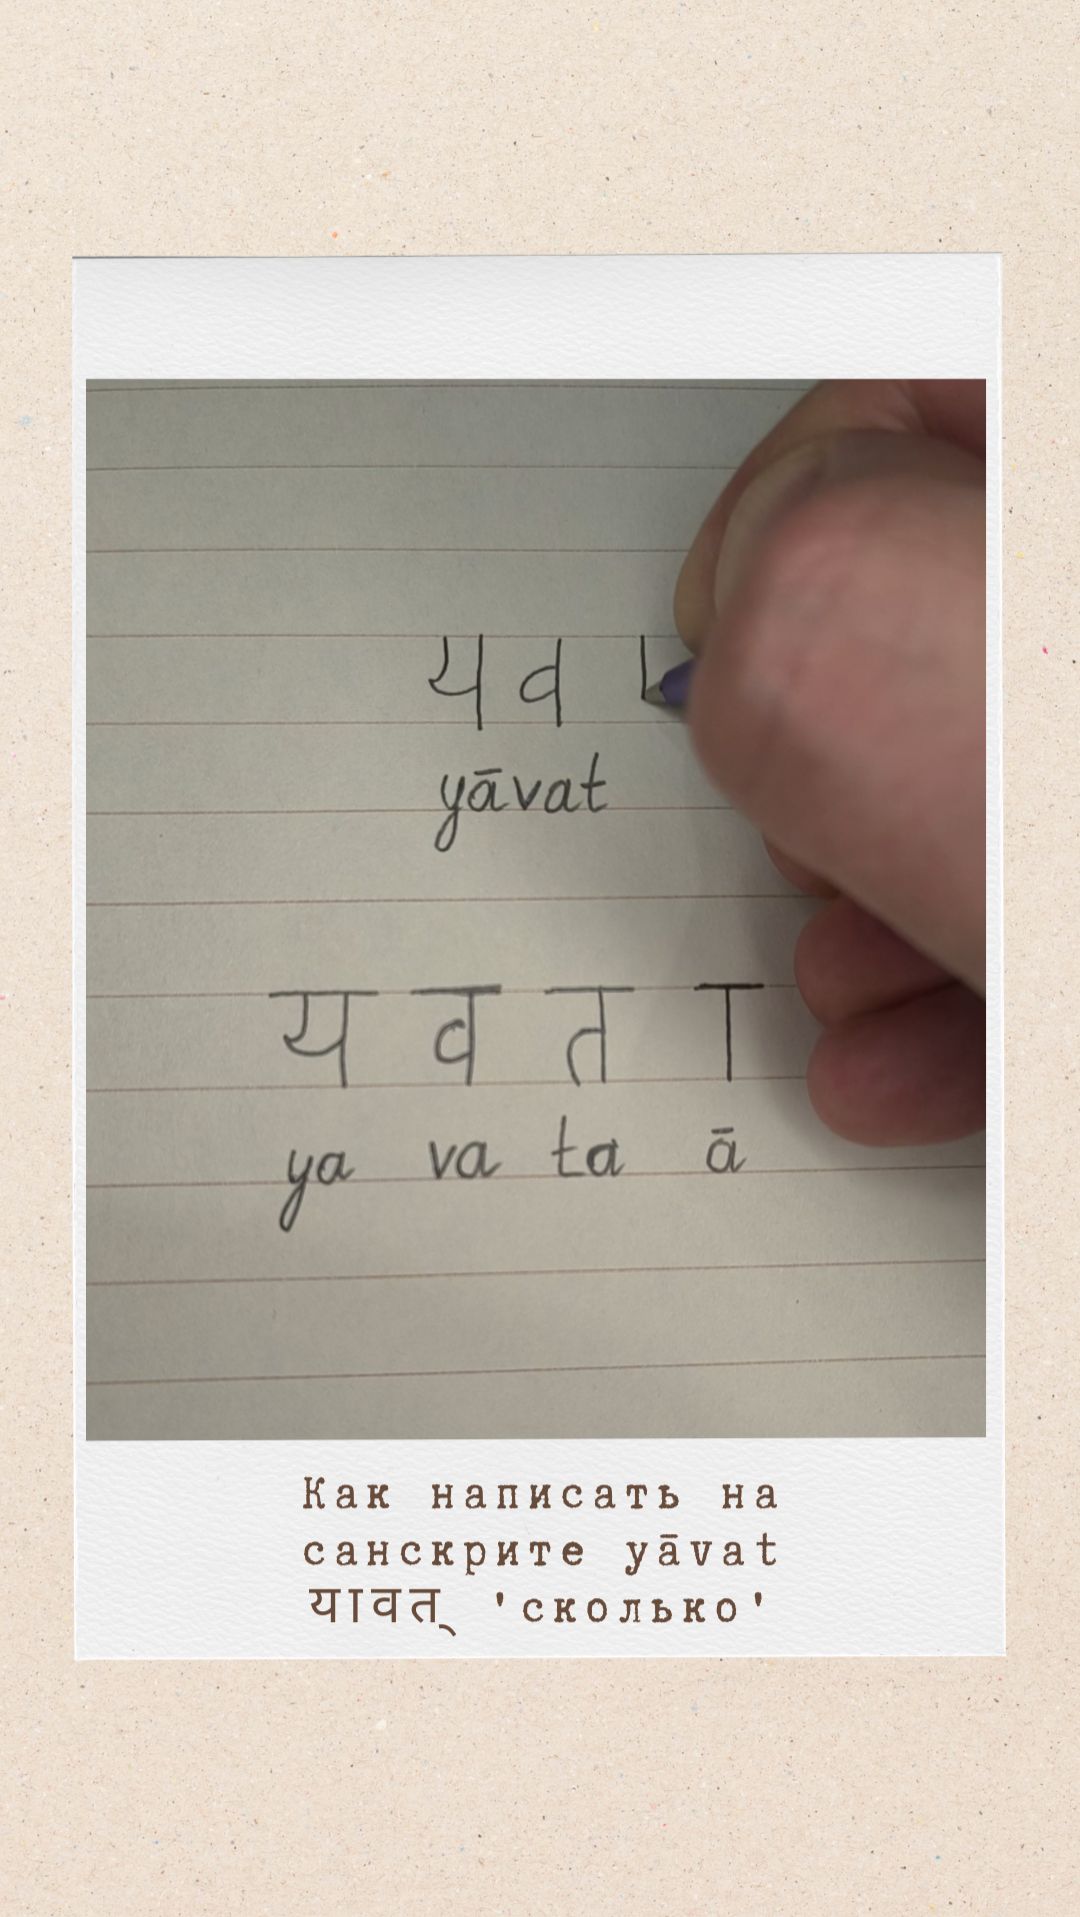 य व
yāvat
य व त ा
ya va ta ā
Как написать на
санскрите yāvat
यावत् 'сколько'